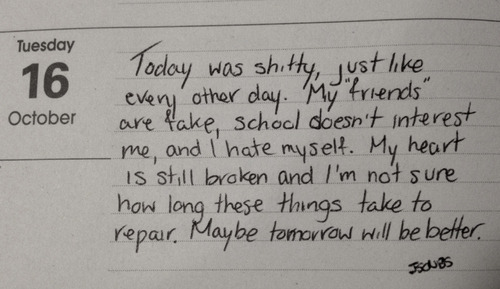 Tuesday
16
October
Today was shitty, just like
every other day. My "friends"
are fake, school doesn't interest
me, and I hate myself. My heart
is still broken and I'm not sure
how long these things take to
repair. Maybe tomorrow will be better.